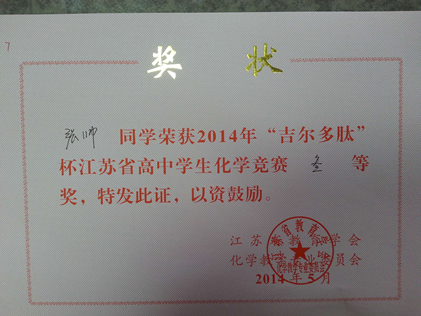 7
奖 状
张帅 同学荣获2014年“吉尔多肽”
杯江苏省高中学生化学竞赛 叁 等
奖，特发此证，以资鼓励。
江苏省教育学会
化学教学专业委员会
2014年5月